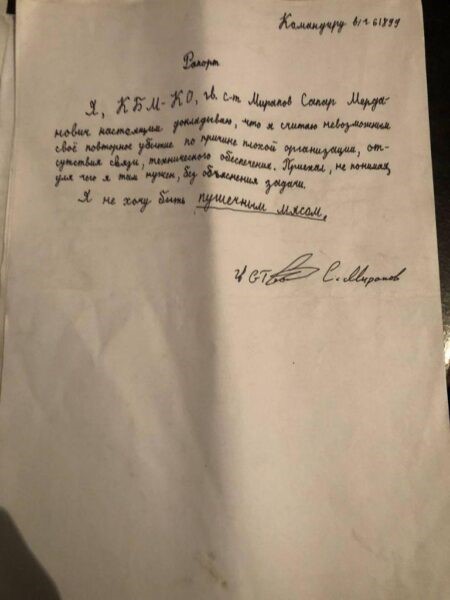 Командиру в/ч 61899
Рапорт
Я, КБМ-КО, гв. с-т Мирапов Сапар Мерда-
нович настоящим докладываю, что я считаю невозможным
своё повторное убытие по причине плохой организации, от-
сутствия связи, технического обеспечения. Приехал, не понимал,
для чего я там нужен, без объяснения задачи.
Я не хочу быть пушечным мясом.
С. Мирапов